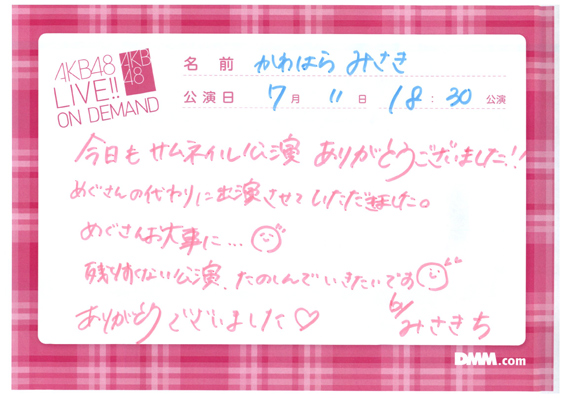 AKB48
LIVE!!
ON DEMAND
AKB
48
名前 かわはら みさき
公演日 7月 11日 18:30 公演
今日も サムネイル公演 ありがとうございました!!
めぐさんの代わりに出演させていただきました。
めぐさんお大事に…
残り少ない公演、たのしんでいきたいです
ありがとうございました♡
by
みさきち
DMM.com